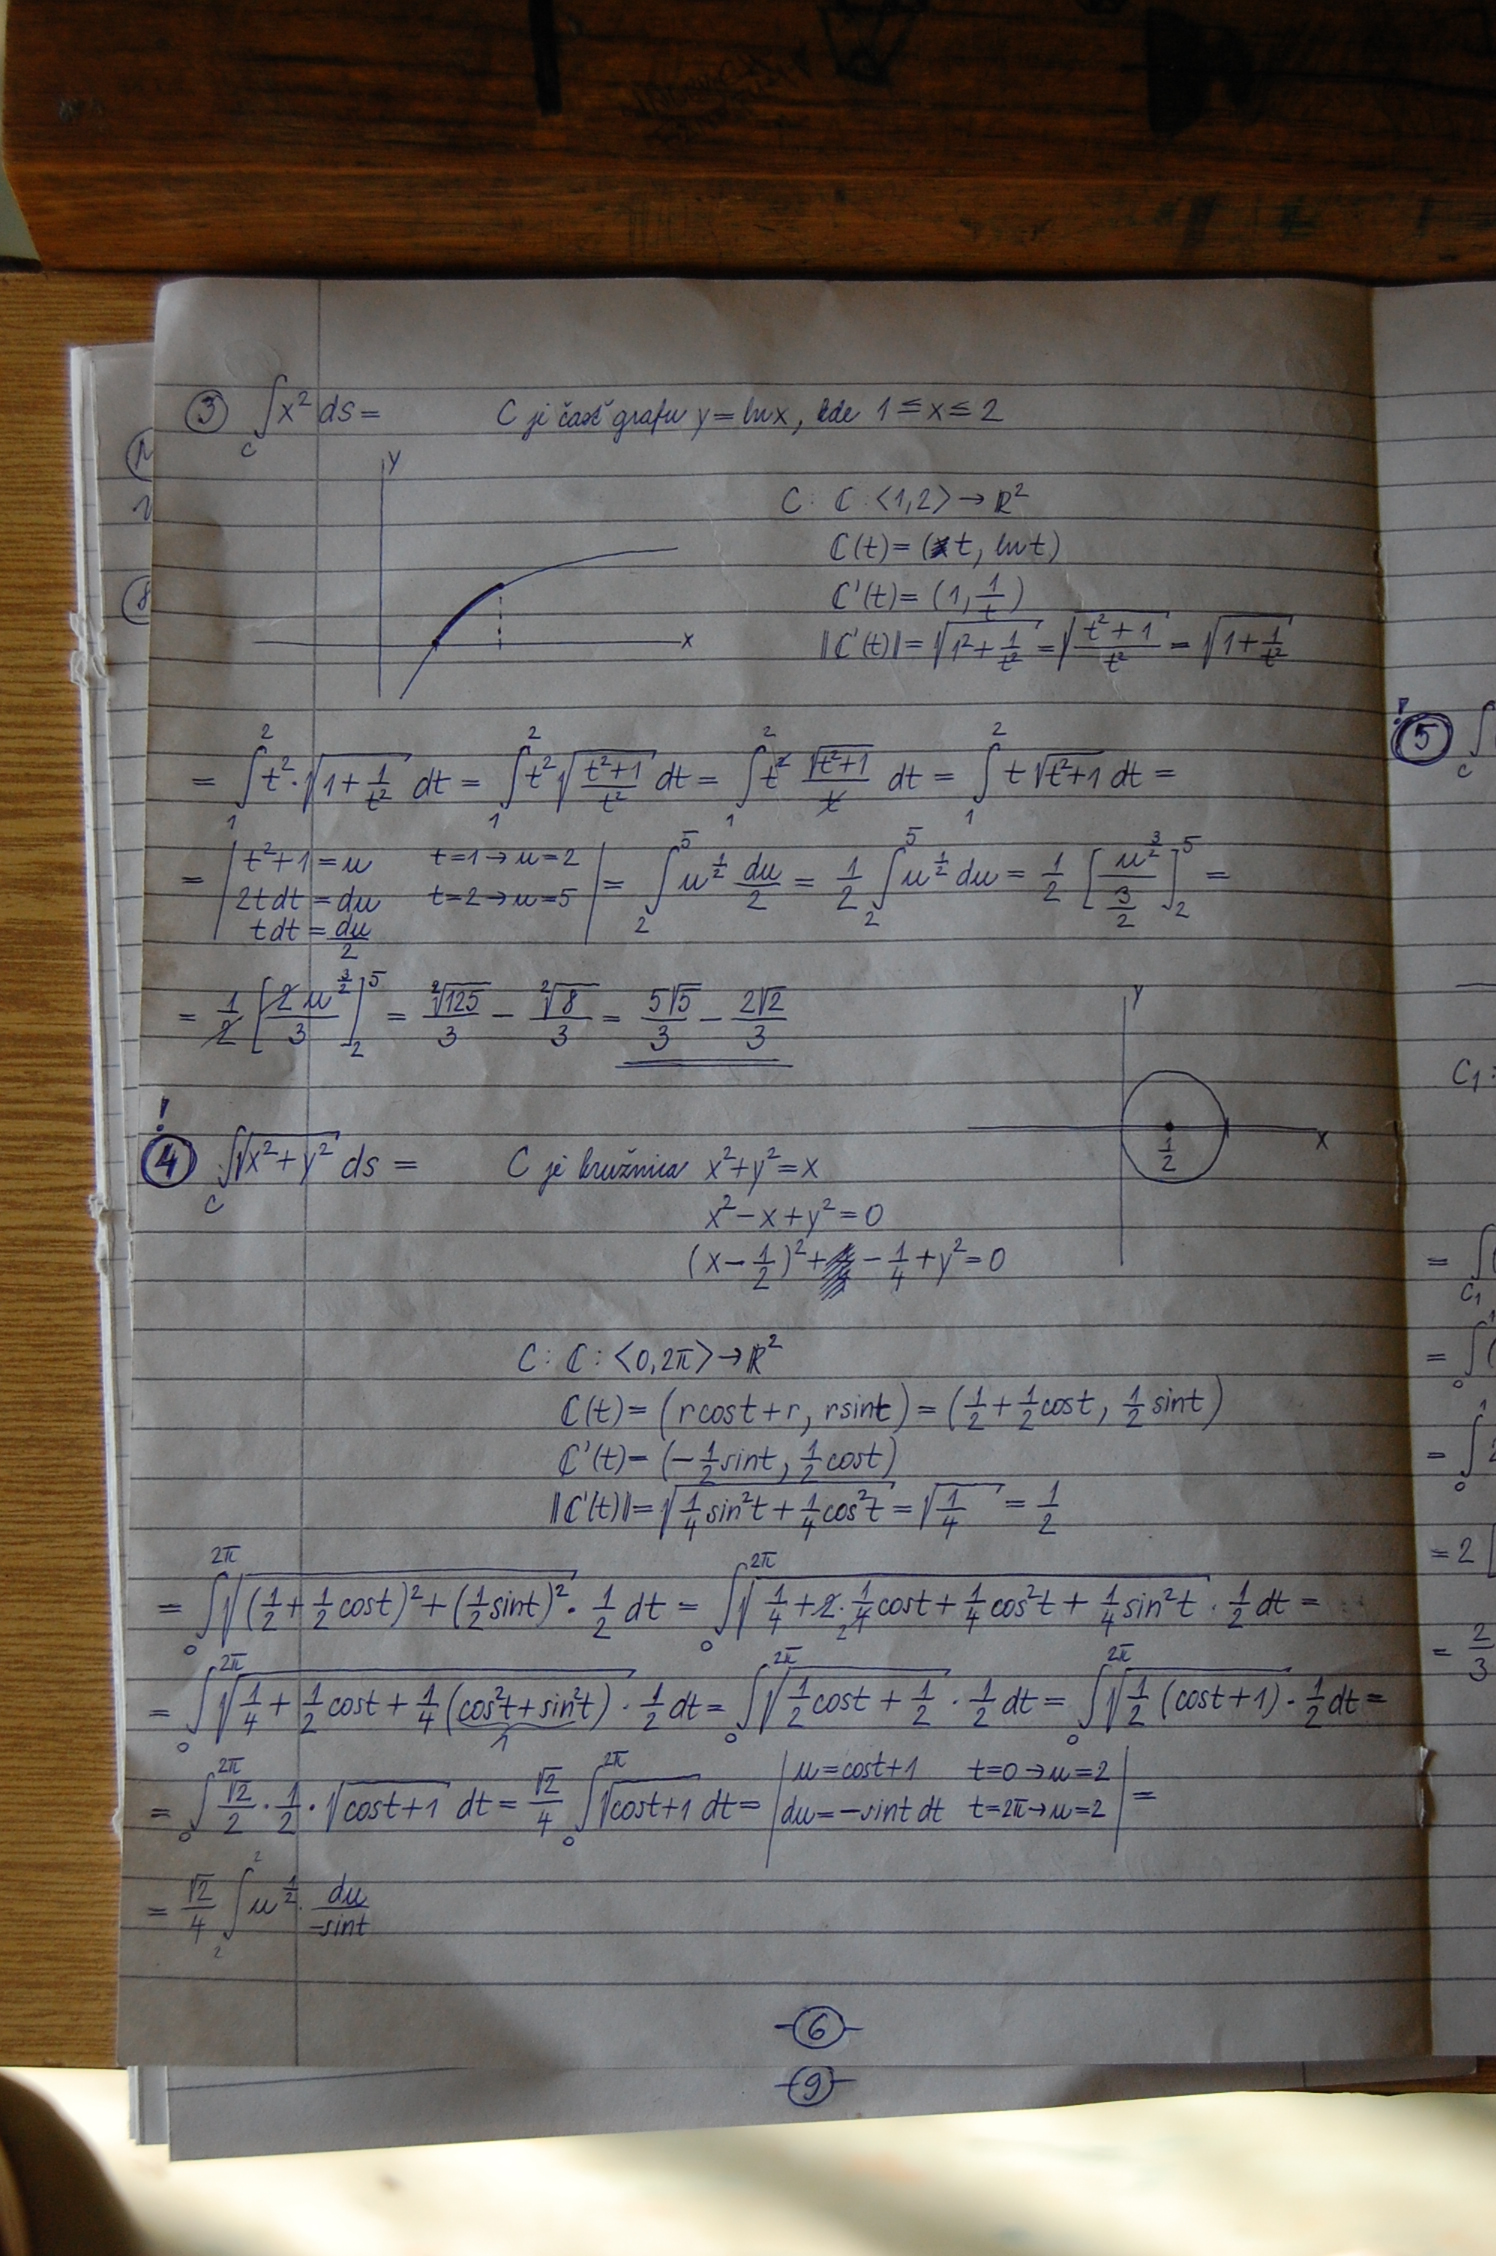 ③ ∫_C x² ds = C je časť grafu y = ln x, kde 1 ≤ x ≤ 2
y
x
C: ℂ: <1,2> → ℝ²
ℂ(t) = (t, ln t)
ℂ'(t) = (1, 1/t)
‖ℂ'(t)‖ = √(1² + 1/t²) = √((t²+1)/t²) = √(1 + 1/t²)
= ∫_1^2 t² · √(1 + 1/t²) dt = ∫_1^2 t² √((t²+1)/t²) dt = ∫_1^2 t² √(t²+1)/t dt = ∫_1^2 t √(t²+1) dt =
= | t²+1 = u t=1 → u=2
2t dt = du t=2 → u=5
t dt = du/2 | = ∫_2^5 u^(1/2) du/2 = 1/2 ∫_2^5 u^(1/2) du = 1/2 [u^(3/2)/(3/2)]_2^5 =
= 1/2 [2u^(3/2)/3]_2^5 = ²√125/3 − ²√8/3 = 5√5/3 − 2√2/3
!
④ ∫_C √(x²+y²) ds = C je kružnica x²+y² = x
x² − x + y² = 0
(x − 1/2)² + − 1/4 + y² = 0
y
x
1/2
C: ℂ: <0,2π> → ℝ²
ℂ(t) = (r cos t + r, r sin t) = (1/2 + 1/2 cos t, 1/2 sin t)
ℂ'(t) = (−1/2 sin t, 1/2 cos t)
‖ℂ'(t)‖ = √(1/4 sin²t + 1/4 cos²t) = √(1/4) = 1/2
= ∫_0^2π √((1/2 + 1/2 cos t)² + (1/2 sin t)²) · 1/2 dt = ∫_0^2π √(1/4 + 2·1/4 cos t + 1/4 cos²t + 1/4 sin²t) · 1/2 dt =
= ∫_0^2π √(1/4 + 1/2 cos t + 1/4 (cos²t + sin²t)) · 1/2 dt = ∫_0^2π √(1/2 cos t + 1/2) · 1/2 dt = ∫_0^2π √(1/2 (cos t + 1)) · 1/2 dt =
1
= ∫_0^2π √2/2 · 1/2 · √(cos t + 1) dt = √2/4 ∫_0^2π √(cos t + 1) dt = | u = cos t + 1 t=0 → u=2
du = −sin t dt t=2π → u=2 | =
= √2/4 ∫_2^2 u^(1/2) · du/−sin t
-⑥-
-⑨-
!
⑤ ∫_C
C₁:
= ∫_C₁
= ∫_0
= ∫_0
= 2 [
= 2/3